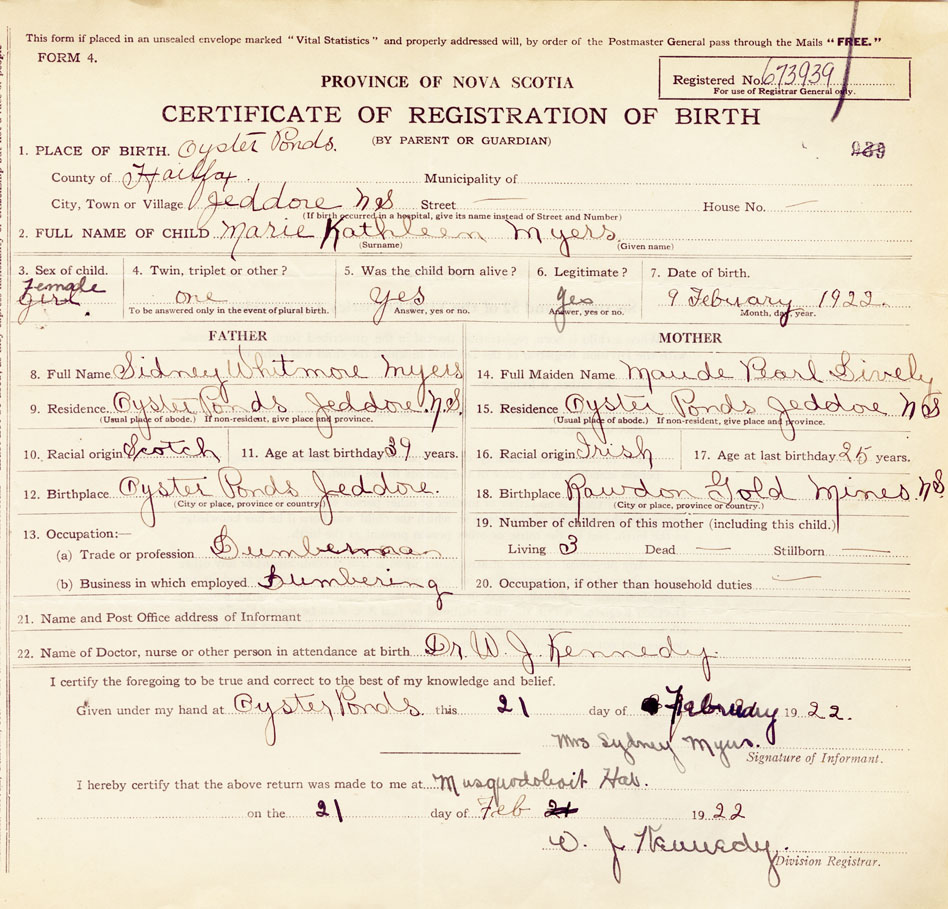 This form if placed in an unsealed envelope marked "Vital Statistics" and properly addressed will, by order of the Postmaster General pass through the Mails "FREE."
FORM 4.
PROVINCE OF NOVA SCOTIA
Registered No. 673939
For use of Registrar General only.
CERTIFICATE OF REGISTRATION OF BIRTH
(BY PARENT OR GUARDIAN)
939
1. PLACE OF BIRTH. Oyster Ponds.
County of Halifax. Municipality of
City, Town or Village Jeddore NS Street — House No. —
(If birth occurred in a hospital, give its name instead of Street and Number)
2. FULL NAME OF CHILD Marie Kathleen Myers
(Surname) (Given name)
3. Sex of child. 4. Twin, triplet or other? 5. Was the child born alive? 6. Legitimate? 7. Date of birth.
Female
Girl one Yes yes 9 February 1922.
To be answered only in the event of plural birth. Answer, yes or no. Answer, yes or no. Month, day, year.
FATHER
8. Full Name Sidney Whitmore Myers
9. Residence. Oyster Ponds Jeddore. N.S.
(Usual place of abode.) If non-resident, give place and province.
10. Racial origin Scotch 11. Age at last birthday 39 years.
12. Birthplace Oyster Ponds Jeddore.
(City or place, province or country.)
13. Occupation:—
(a) Trade or profession Lumberman
(b) Business in which employed Lumbering
MOTHER
14. Full Maiden Name Maude Pearl Lively
15. Residence Oyster Ponds Jeddore NS
(Usual place of abode.) If non-resident, give place and province.
16. Racial origin Irish 17. Age at last birthday 25 years.
18. Birthplace Rawdon Gold Mines NS
(City or place, province or country.)
19. Number of children of this mother (including this child.)
Living 3 Dead — Stillborn —
20. Occupation, if other than household duties —
21. Name and Post Office address of Informant
22. Name of Doctor, nurse or other person in attendance at birth Dr. W. J. Kennedy.
I certify the foregoing to be true and correct to the best of my knowledge and belief.
Given under my hand at Oyster Ponds this 21 day of February 1922.
Mrs Sydney Myers.
Signature of Informant.
I hereby certify that the above return was made to me at Musquodoboit Har.
on the 21 day of Feb 21 1922
W. J. Kennedy.
Division Registrar.